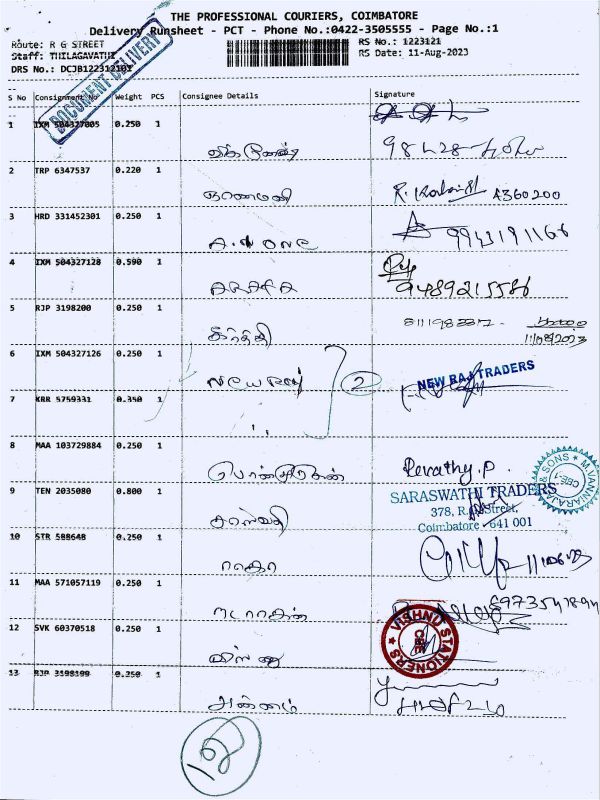 THE PROFESSIONAL COURIERS, COIMBATORE
Delivery Runsheet - PCT - Phone No.:0422-3505555 - Page No.:1
Route: R G STREET
RS No.: 1223121
Staff: THILAGAVATHI
RS Date: 11-Aug-2023
DRS No.: DCJB12231210I
DOCUMENT DELIVERY
S No Consignment No Weight PCS Consignee Details Signature
1 IXM 504327005 0.250 1
2 TRP 6347537 0.220 1 A360200
3 HRD 331452301 0.250 1 A. ONE
4 IXM 504327128 0.590 1 9489215586
5 RJP 3198200 0.250 1 கீர்த்தி
11/08/2023
6 IXM 504327126 0.250 1 New Raj 2 NEW RAJ TRADERS
7 KRR 5759331 0.350 1 ,,
8 MAA 103729884 0.250 1 Revathy.P.
9 TEN 2035080 0.800 1 சரஸ்வதி SARASWATHI TRADERS
378, R.G. Street,
Coimbatore - 641 001
& SONS ★ M.VIANNIARAJ
CBE-1
10 STR 588648 0.250 1 ராதா
11 MAA 571057119 0.250 1
12 SVK 60370518 0.250 1 விஸ்ணு VISHNU STATIONERS CBE
13 RJP 3198199 0.250 1 அன்னம்
13